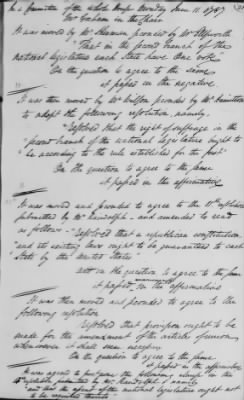 In a Committee of the whole House Monday June 11. 1787.
Mr Gorham in the Chair
It was moved by Mr Sherman seconded by Mr Ellsworth
"That in the second branch of the
national legislature each State have One vote
On the question to agree to the same
it passed in the negative.
It was then moved by Mr Wilson seconded by Mr Hamilton
to adopt the following resolution, namely.
"Resolved that the right of suffrage in the
"second branch of the national legislature ought to
"be according to the rule established for the first"
On the question to agree to the same
it passed in the affirmative
It was moved and seconded to agree to the 11th
submitted by Mr Randolph - and amended to read
as follows - "Resolved that a republican constitution
and its existing laws ought to be guaranteed to each
State by the United States"
and on the question to agree to the same
it passed in the affirmative
It was then moved and seconded to agree to the
following resolution
Resolved that provision ought to be
made for the amendment of the articles of union
whensoever it shall seem necessary
On the question to agree to the same
it passed in the affirmative
It was agreed to postpone the following clause in the
resolution submitted by Mr Randolph namely
"and that the assent of the national legislature ought not
to be required thereto"